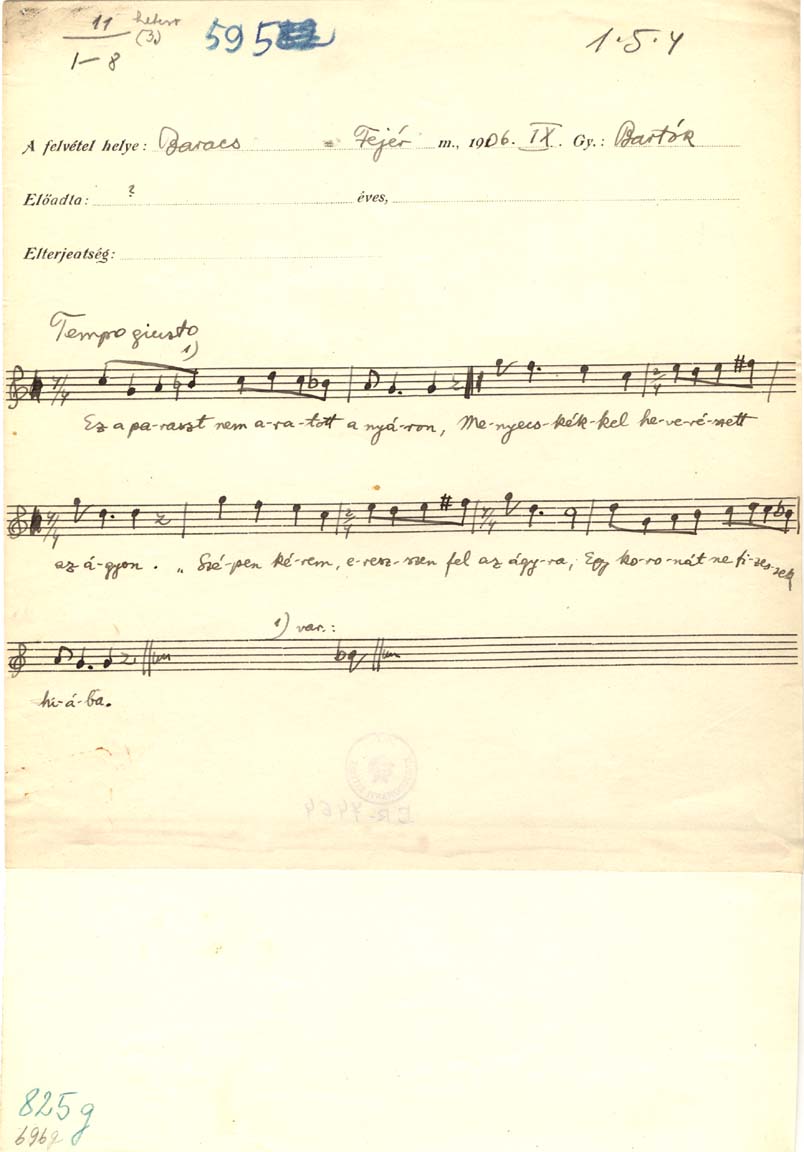 11 hetest
1–8 (3.)
595
1.5.4
A felvétel helye: Baracs = Fejér m., 1906. IX. Gy.: Bartók
Előadta: ? éves,
Elterjeatség:
Tempo giusto
1)
4/4 2/4
Ez a pa-raszt nem a-ra-tott a nyá-ron, Me-nyecs-kék-kel he-ve-ré-szett
4/4 2/4 4/4
az á-gyon. „Szé-pen ké-rem, e-resz-szen fel az ágy-ra, Egy ko-ro-nát ne fi-zes-sek
1) var.:
hi-á-ba.
825g
696g